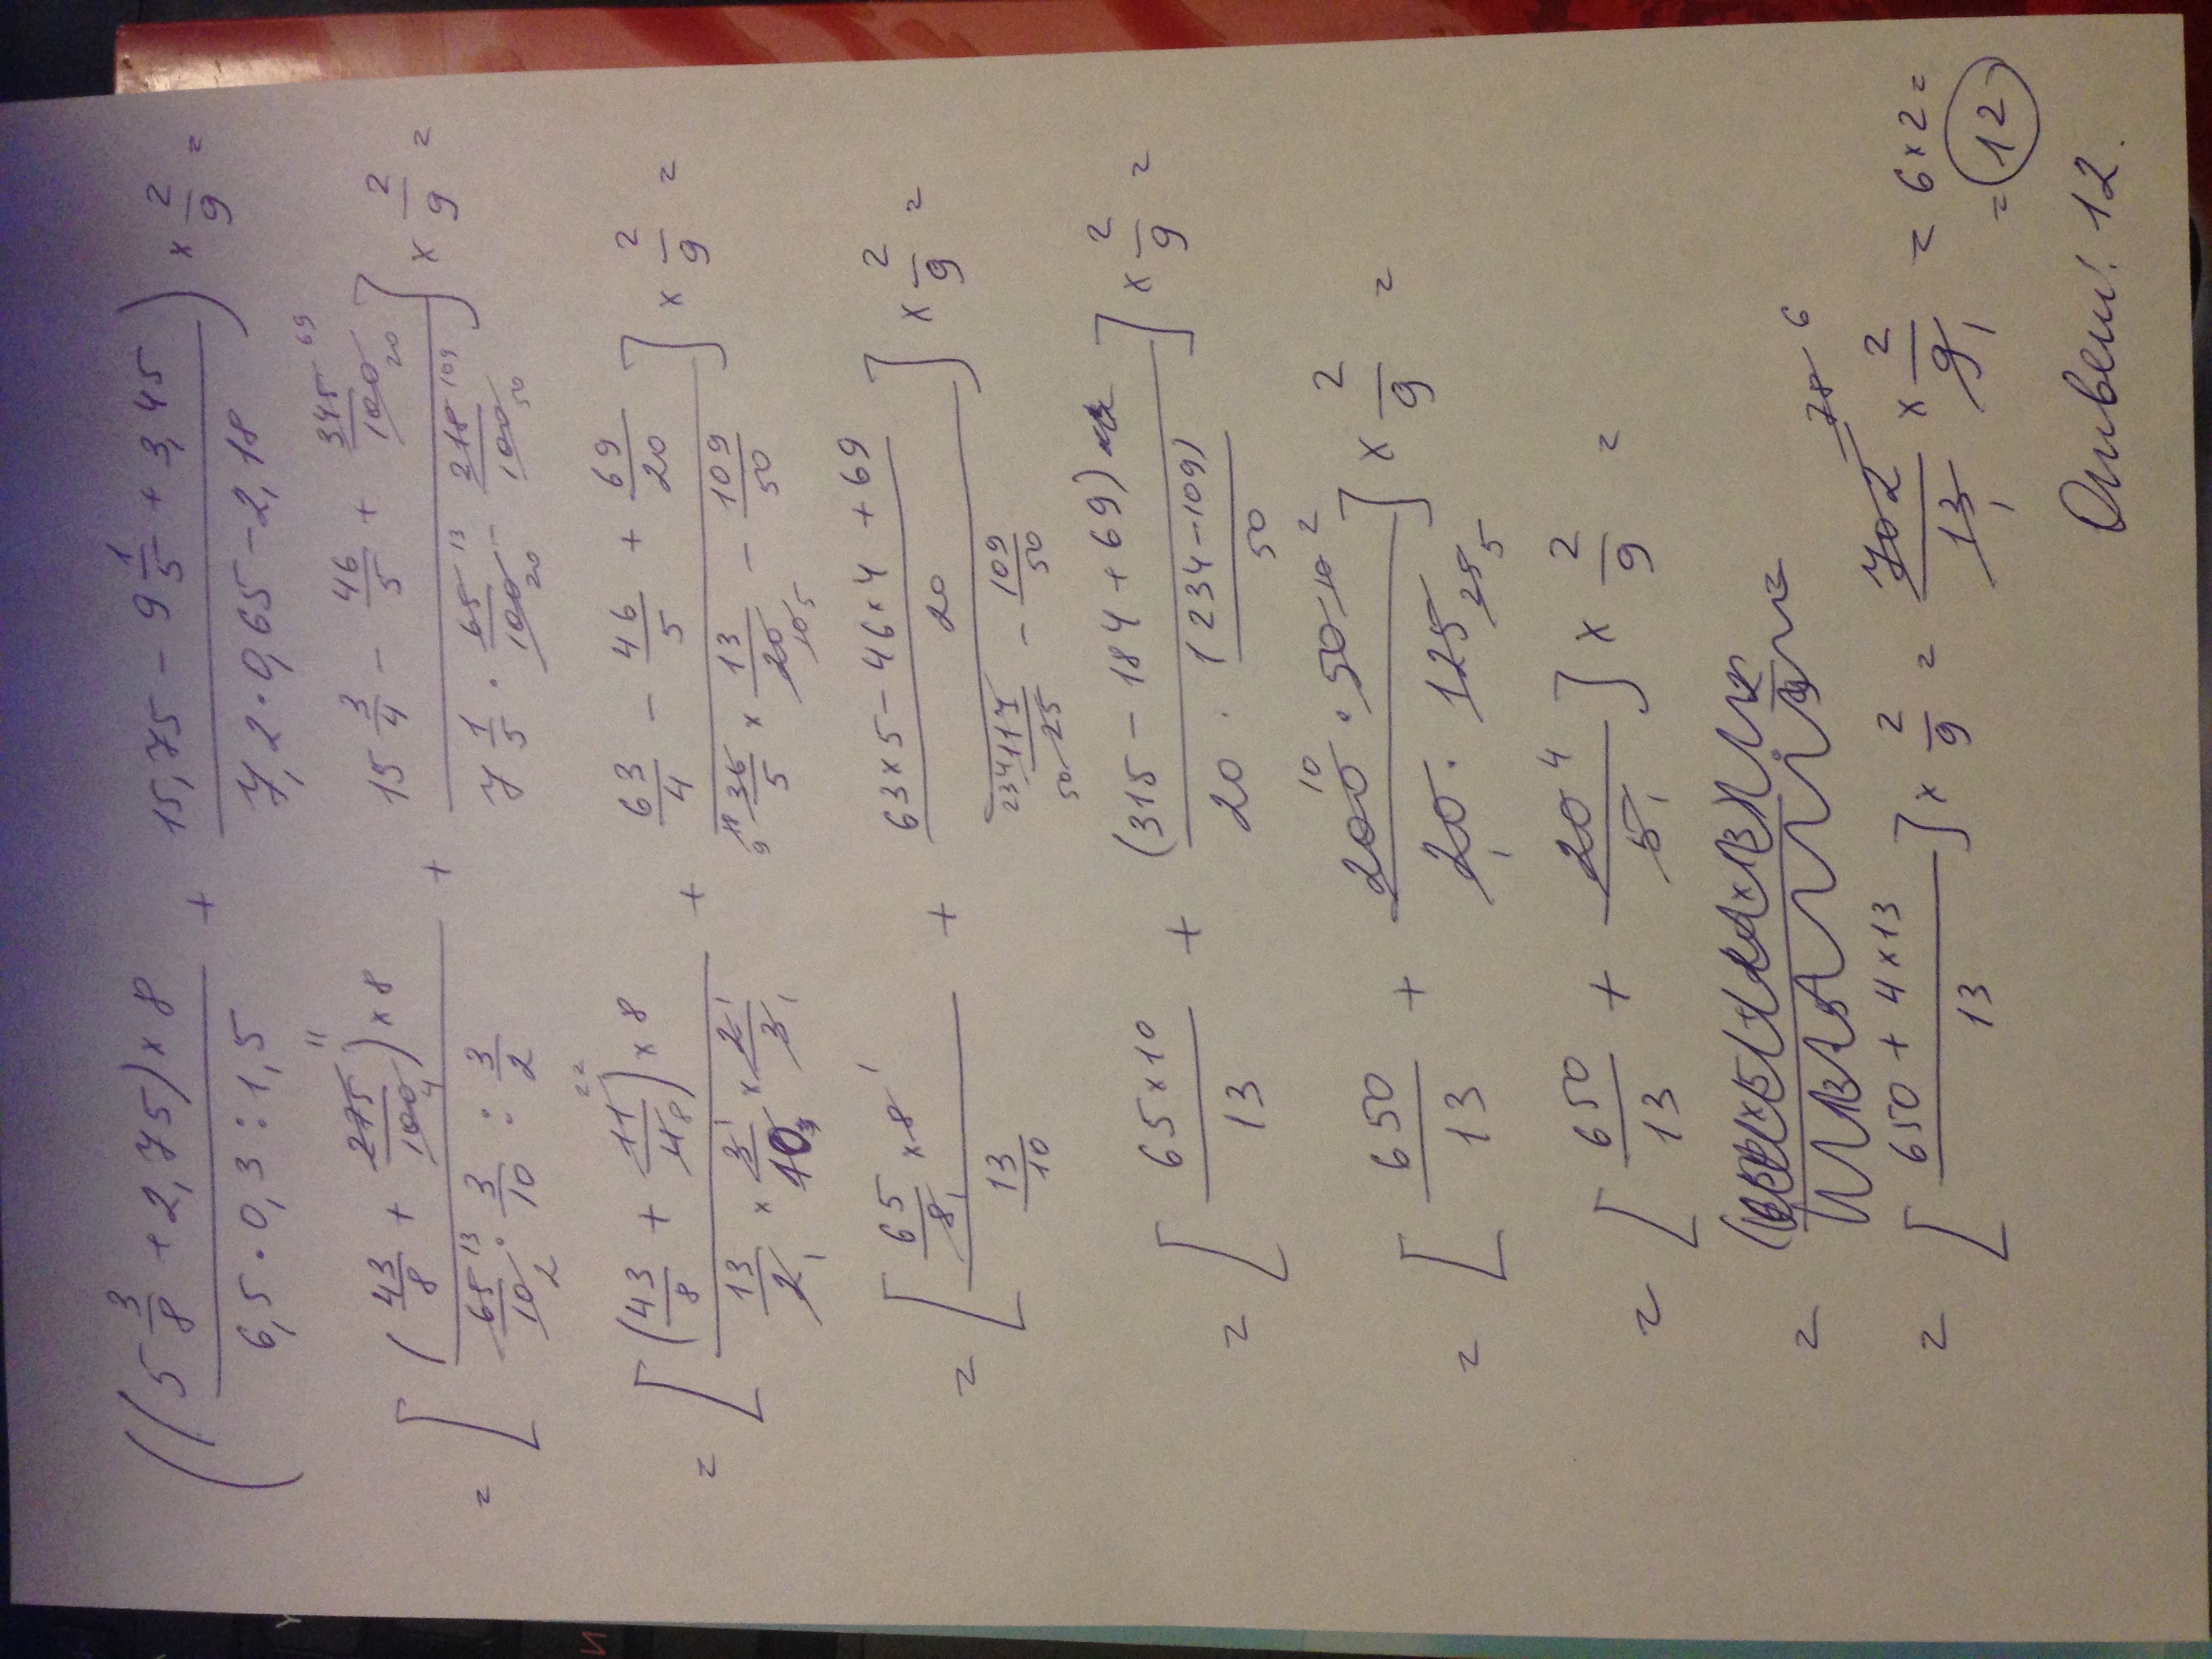 ((5 3/8 + 2,75) × 8 / 6,5 · 0,3 : 1,5 + 15,75 − 9 1/5 + 3,45 / 7,2 · 0,65 − 2,18) × 2/9 =
= [(43/8 + 275/100 11/4) × 8 / 65/10 13/2 · 3/10 : 3/2 + 15 3/4 − 46/5 + 345/100 69/20 / 7 1/5 · 65/100 13/20 − 218/100 109/50] × 2/9 =
= [(43/8 + 11/4 22/8) × 8 / 13/2 × 3/10 × 2/3 + 63/4 − 46/5 + 69/20 / 36/5 × 13/20 − 109/50] × 2/9 =
= [65/8 × 8 / 13/10 + 63×5 − 46×4 + 69 / 20 / 234 117 / 50 25 − 109/50] × 2/9 =
= [65×10 / 13 + (315 − 184 + 69) / 20 · (234 − 109) / 50] × 2/9 =
= [650/13 + 200 10 · 50 10 2 / 20 1 · 125 25 5] × 2/9 =
= [650/13 + 20 4 / 5 1] × 2/9 =
=
= [650 + 4×13 / 13] × 2/9 = 702 78 6 / 13 1 × 2 / 9 1 = 6×2 =
= 12
Ответ: 12.